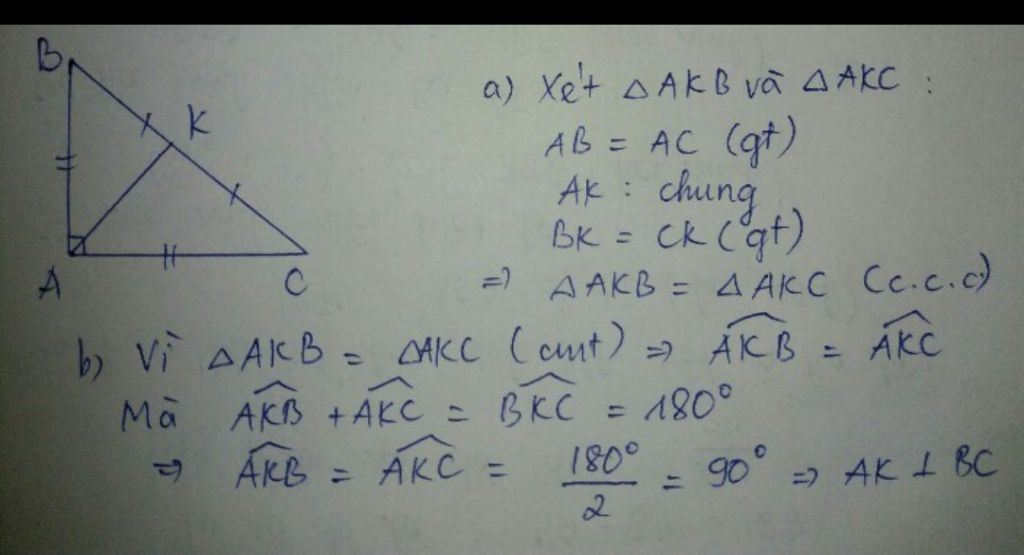 B
K
A
C
a) Xét △AKB và △AKC :
AB = AC (gt)
AK : chung
BK = CK (gt)
=> △AKB = △AKC (c.c.c)
b) Vì △AKB = △AKC (cmt) => \widehat{AKB} = \widehat{AKC}
Mà \widehat{AKB} + \widehat{AKC} = \widehat{BKC} = 180°
=> \widehat{AKB} = \widehat{AKC} = \frac{180°}{2} = 90° => AK ⊥ BC